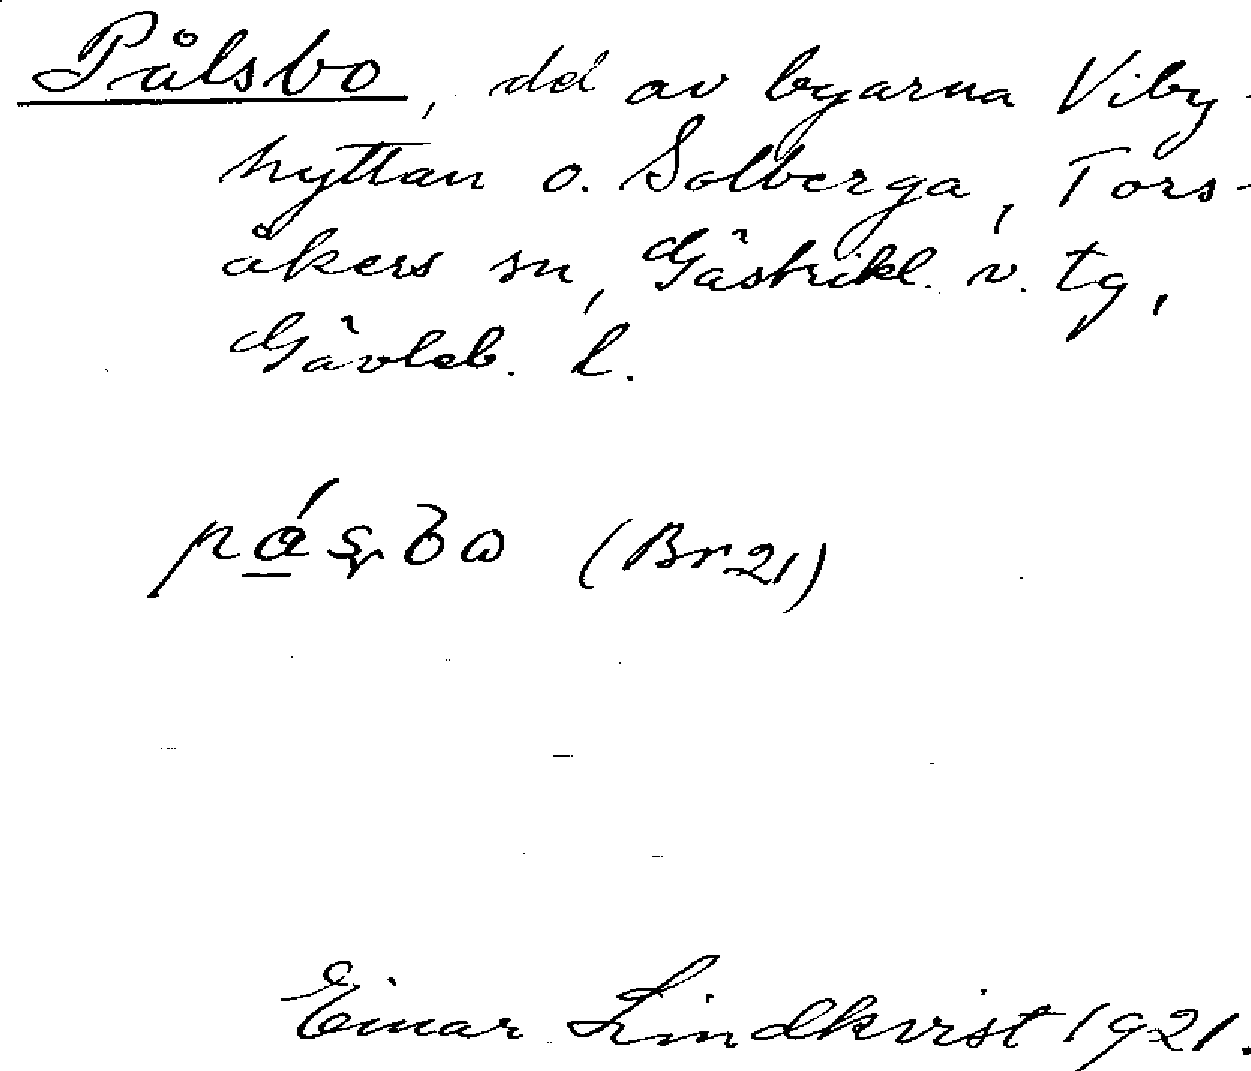 Pålsbo, del av byarna Viby-
hyttan o. Solberga, Tors-
åkers sn, Gästrikl. v. tg,
Gävleb. l.
(Br 21)
Einar Lindkvist 1921.